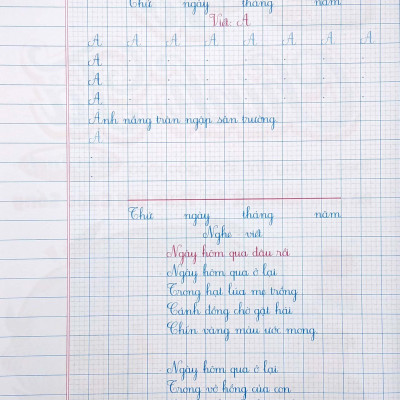 Thứ ngày tháng năm
Viết: A
A A A A A A A A
A . . . . . . .
A . . . . . . .
A . . . . . . .
Ánh nắng tràn ngập sân trường.
A
Thứ ngày tháng năm
Nghe viết
Ngày hôm qua đâu rồi
Ngày hôm qua ở lại
Trong hạt lúa mẹ trồng
Cánh đồng chờ gặt hái
Chín vàng màu ước mong.
Ngày hôm qua ở lại
Trong vở hồng của con